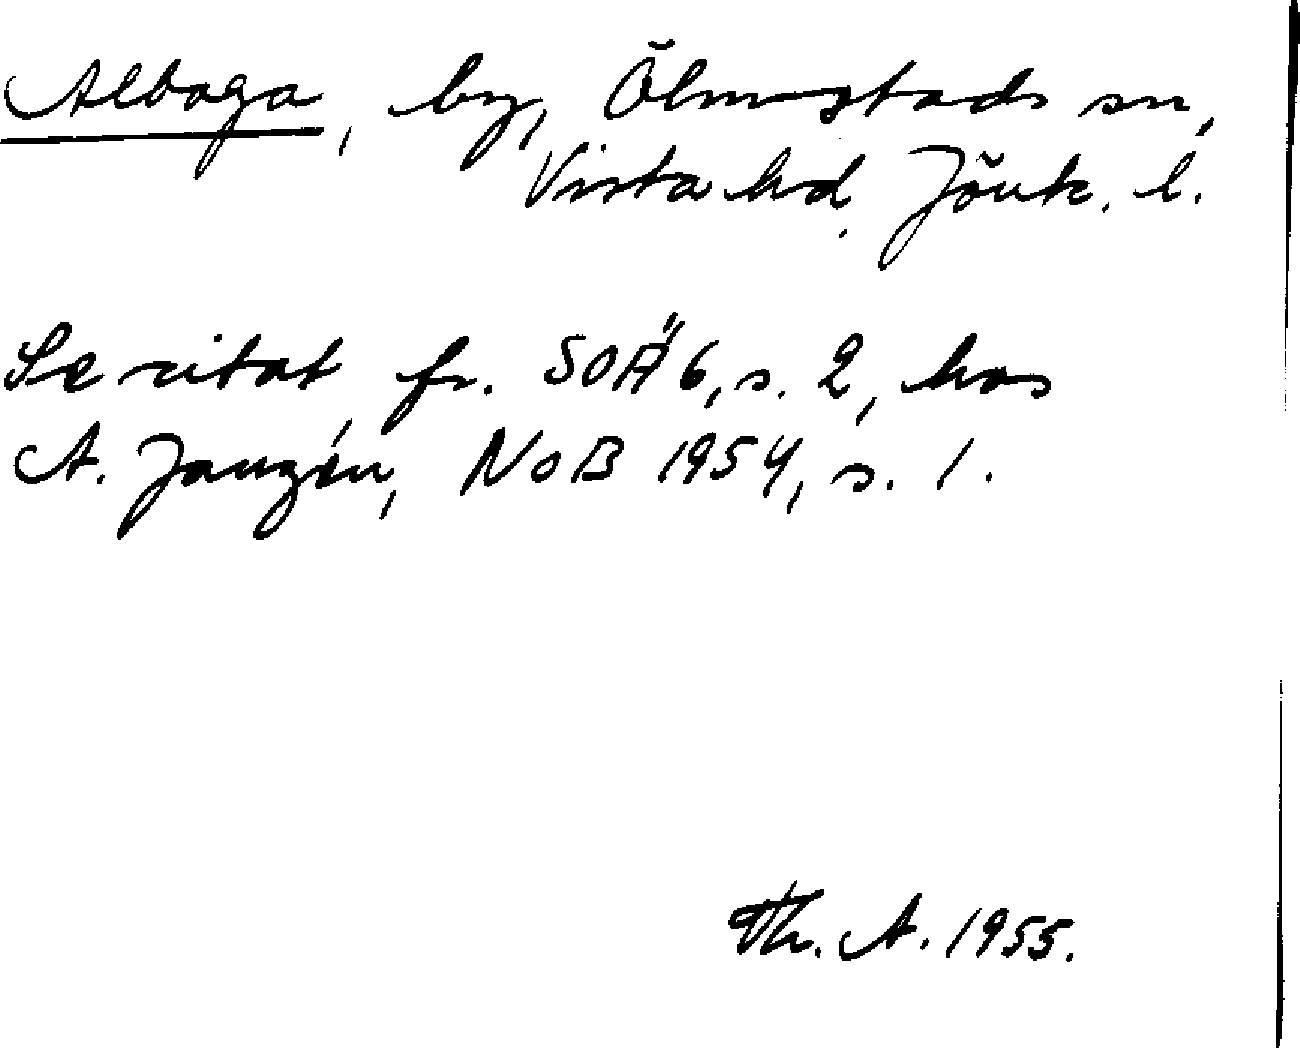 Alboga, by, Ölmstads sn,
Vista hd, Jönk. l.
Se citat fr. SOÄ 6, s. 2, hos
A. Janzén, NoB 1954, s. 1.
Th. A. 1955.